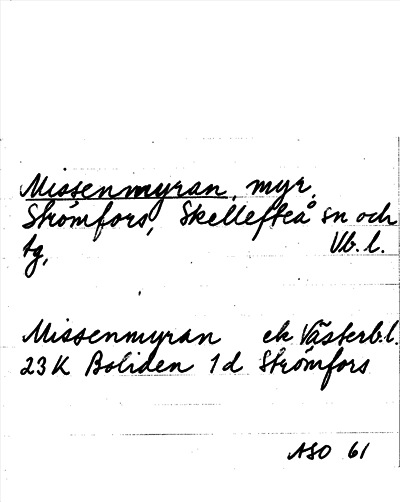 Missenmyran, myr,
Strömfors, Skellefteå sn och
tg, Vb. l.
Missenmyran ek. Västerb.l.
23K Boliden 1d Strömfors
ASO 61